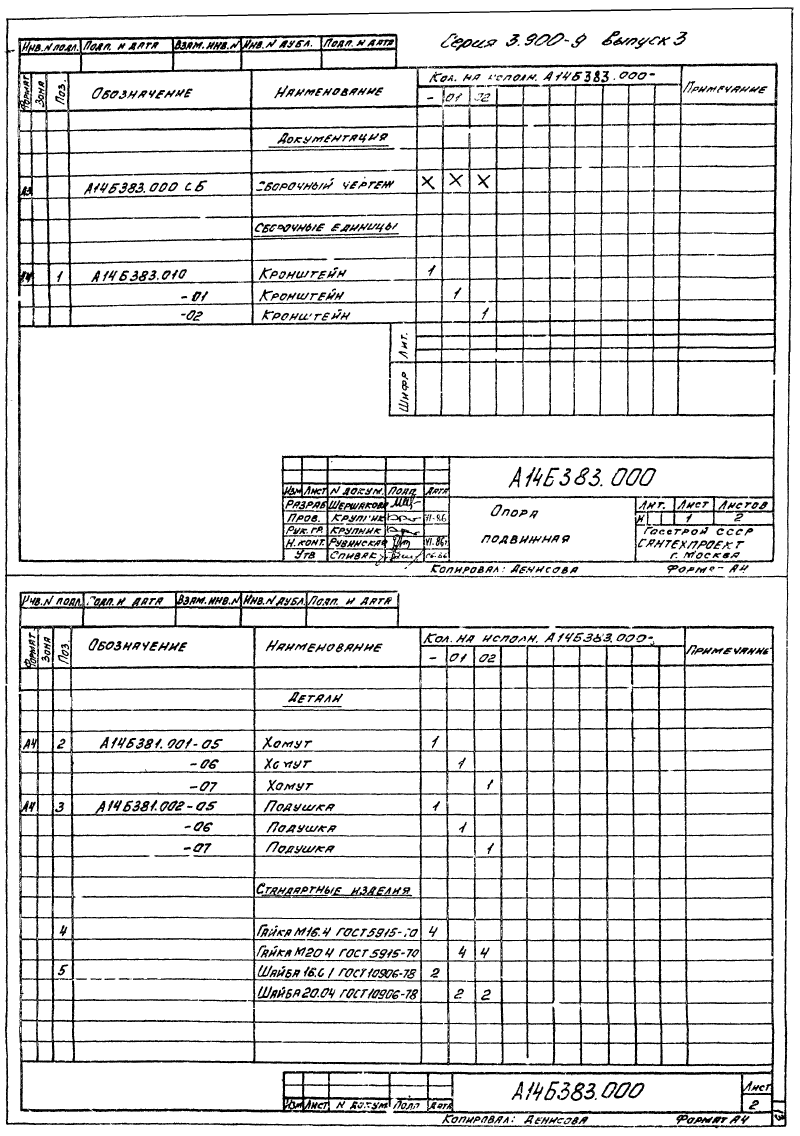 Серия 3.900-9 Выпуск 3
Инв.N подл. Подп. и дата Взам.инв.N Инв.N дубл. Подп. и дата
Формат Зона Поз. Обозначение Наименование Кол. на исполн. А14Б383.000- Примечание
- 01 02
Документация
А3 А14Б383.000 СБ Сборочный чертеж X X X
Сборочные единицы
А4 1 А14Б383.010 Кронштейн 1
-01 Кронштейн 1
-02 Кронштейн 1
Лит.
Шифр
А14Б383.000
Изм Лист N докум. Подп. Дата
Разраб Шершакова
Пров. Крупник VI-86
Рук.гр. Крупник
Н.конт. Рувинская VI.86г
Утв. Спивак 06.86
Опора
подвижная
Лит. Лист Листов
И 1 2
Госстрой СССР
Сантехпроект
г. Москва
Копировал: Денисова Формат А4
Инв.N подл. Подп. и дата Взам.инв.N Инв.N дубл. Подп. и дата
Формат Зона Поз. Обозначение Наименование Кол. на исполн. А14Б383.000- Примечание
- 01 02
Детали
А4 2 А14Б381.001-05 Хомут 1
-06 Хомут 1
-07 Хомут 1
А4 3 А14Б381.002-05 Подушка 1
-06 Подушка 1
-07 Подушка 1
Стандартные изделия
4 Гайка М16.4 ГОСТ 5915-70 4
Гайка М20.4 ГОСТ 5915-70 4 4
5 Шайба 16.01 ГОСТ 10906-78 2
Шайба 20.04 ГОСТ 10906-78 2 2
А14Б383.000
Лист
2
Изм Лист N докум Подп Дата
Копировал: Денисова Формат А4